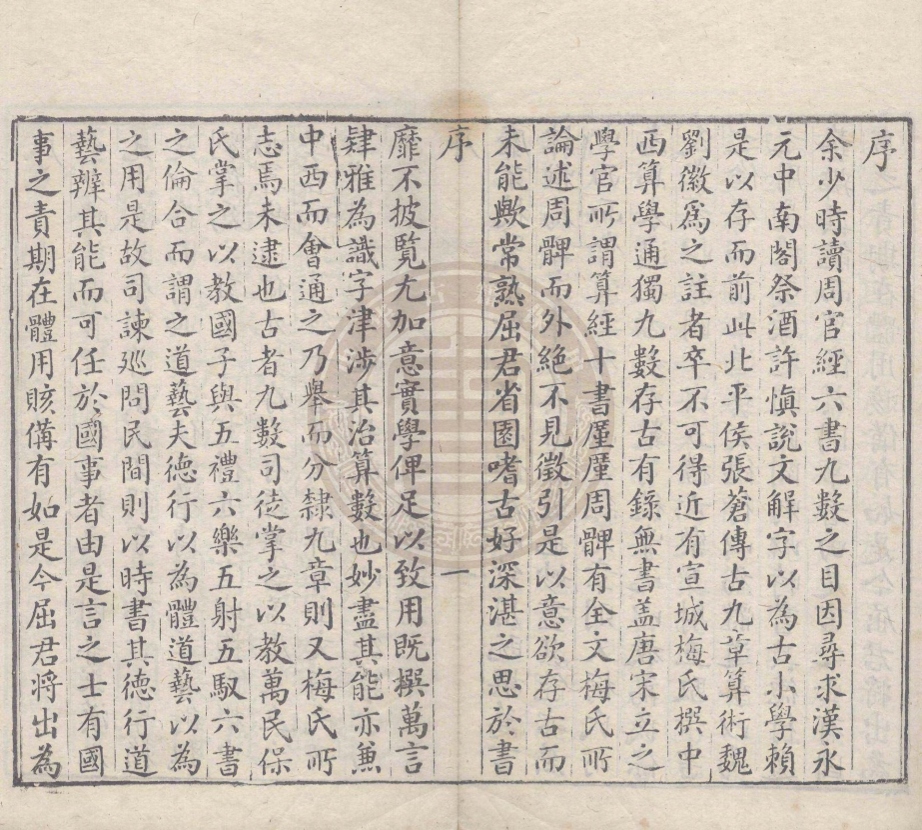 序
余少時讀周官經六書九數之目因尋求漢永
元中南閣祭酒許慎說文解字以為古小學賴
是以存而前此北平侯張蒼傳古九章算術魏
劉徽爲之註者卒不可得近有宣城梅氏撰中
西算學通獨九數存古有錄無書盖唐宋立之
學官所謂算經十書厪厪周髀有全文梅氏所
論述周髀而外絕不見徵引是以意欲存古而
未能歟常熟屈君省園嗜古好深湛之思於書
序
一
靡不披覧尤加意實學俾足以致用既撰萬言
肄雅為識字津涉其治算數也妙盡其能亦兼
中西而會通之乃舉而分隸九章則又梅氏所
志焉未逮也古者九數司徒掌之以教萬民保
氏掌之以教國子與五禮六樂五射五馭六書
之倫合而謂之道藝夫德行以為體道藝以為
之用是故司諫廵問民間則以時書其德行道
藝辨其能而可任於國事者由是言之士有國
事之責期在體用賅備有如是今屈君將出為